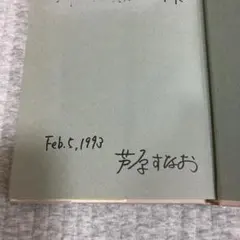 Feb. 5, 1993
芦原すなお